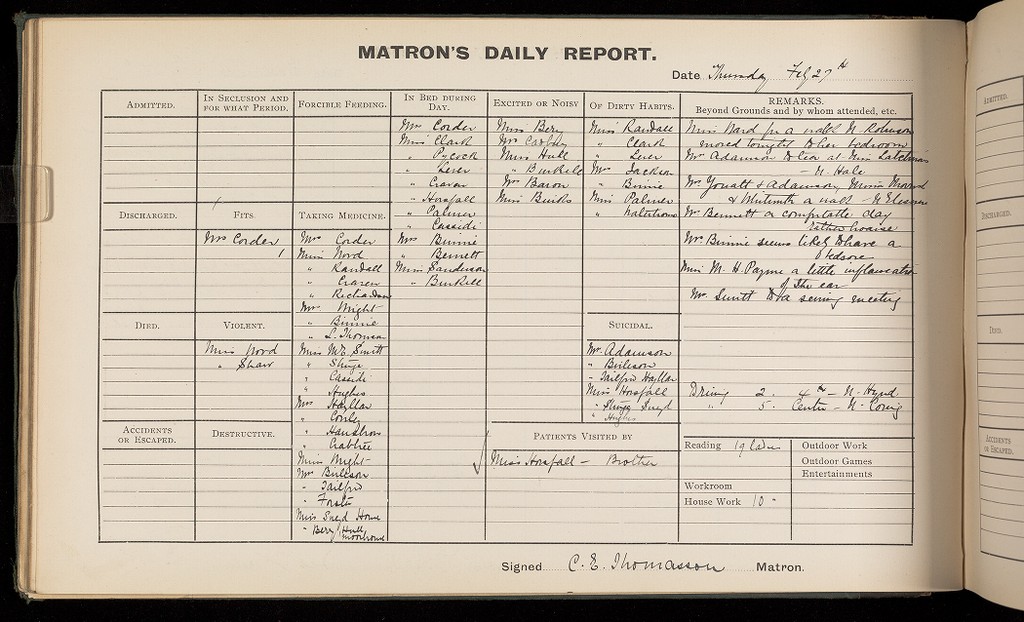 MATRON'S DAILY REPORT.
Date Thursday Feb 27th
ADMITTED.
IN SECLUSION AND FOR WHAT PERIOD.
FORCIBLE FEEDING.
IN BED DURING DAY.
Mrs Corder
Miss Clark
" Pycock
" Lever
" Craven
" Horsfall
" Palmer
" Cassidi
Mrs Binnie
" Bennett
Miss Sanderson
" Burkill
EXCITED OR NOISY
Miss Bery
Mrs
Miss Hull
" Burkill
Mrs Baron
Miss Burks
OF DIRTY HABITS.
Miss Randall
" Clark
" Lever
Mrs Jackson
" Binnie
Miss Palmer
"
REMARKS.
Beyond Grounds and by whom attended, etc.
Miss Nord for a walk N. Robinson
moved tonight to her bedroom
Mrs Adamson to tea at Miss
– N. Hale
Mrs Youatt & Adamson, Misses
& a walk – N
Mrs Bennett a comfortable day
Mrs Binnie seems likely to have a
bedsore
Miss M. H. Payne a little inflammation
of the ear
Mrs Smitt to a sewing meeting
Driving 2. 4th – N. Hynd
" 5. Centre – N.
DISCHARGED.
FITS.
Mrs Corder
1
TAKING MEDICINE.
Mrs Corder
Miss Nord
" Randall
" Craven
" Richardson
Mrs Wright
" Binnie
" L. Thomson
Miss M.E. Smitt
"
" Cassidi
" Hughes
Mrs Hayllar
"
"
" Crabtree
Miss Wright
Mrs Burleson
" Tailford
" Forster
Miss Sneyd Howe
" Bery / Hull
DIED.
VIOLENT.
Miss Nord
" Shaw
SUICIDAL.
Mrs Adamson
" Burleson
" Tailford Hayllar
Miss Horsfall
" Sneyd
" Hughes
ACCIDENTS OR ESCAPED.
DESTRUCTIVE.
PATIENTS VISITED BY
Miss Horsfall – Brother
Reading 19 Ladies
Workroom
House Work 10 -
Outdoor Work
Outdoor Games
Entertainments
Signed C. E. Thomasson Matron.
ADMITTED.
DISCHARGED.
DIED.
ACCIDENTS
OR ESCAPED.